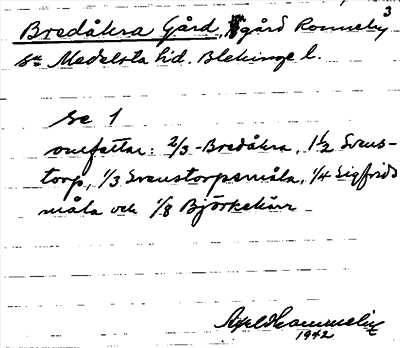 3
Bredåkra Gård, gård Ronneby
sn Medelsta hd. Blekinge l.
se 1
omfattar: 2/3-Bredåkra, 1 1/2 Svens-
torp, 1/3 Svenstorpsmåla, 1/4 Sigfrids
måla och 1/8 Björkekärr
Axel
1942